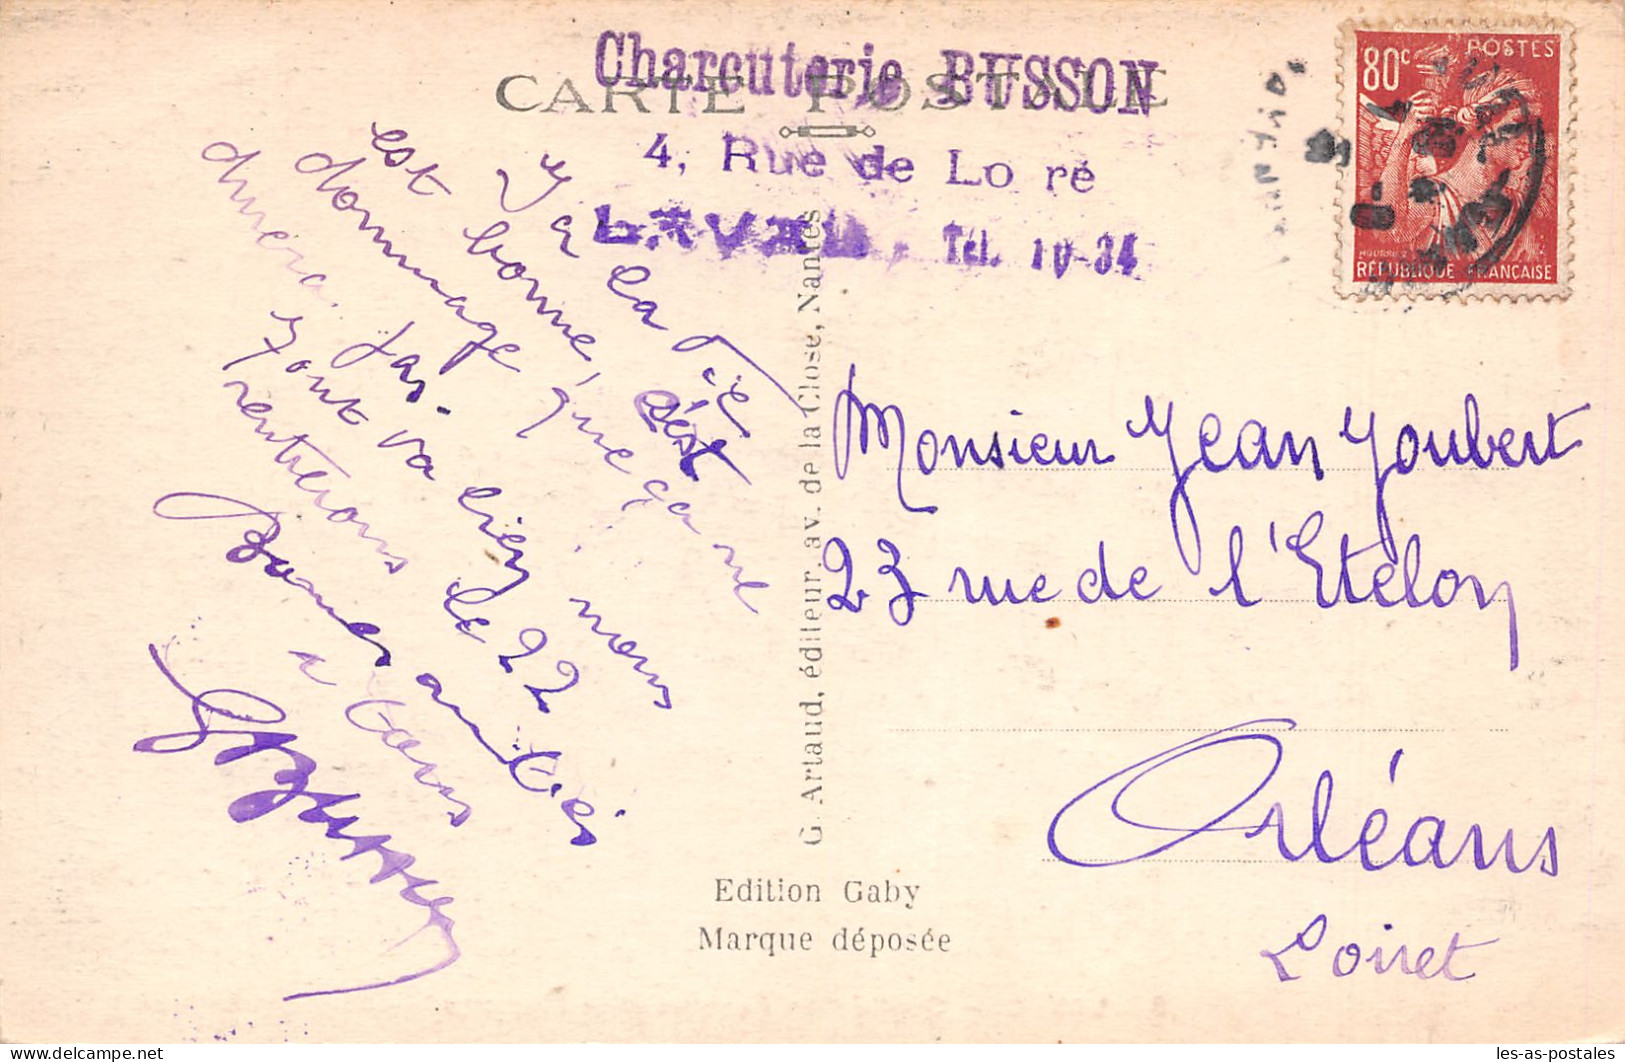 Charcuterie BUSSON
CARTE POSTALE
4, Rue de Lo ré
LAVAL. Tél. 10-34
80c POSTES
RÉPUBLIQUE FRANÇAISE
Y a la vie
est bonne, c'est
dommage que ça ne
durera pas.
tout va bien nous
rentrerons le 22
Bonnes amitiés
a tous
GBusson
G. Artaud, éditeur, av. de la Close, Nantes
Monsieur Jean Joubert
23 rue de l'Etelon
Orléans
Loiret
Edition Gaby
Marque déposée
les-as-postales